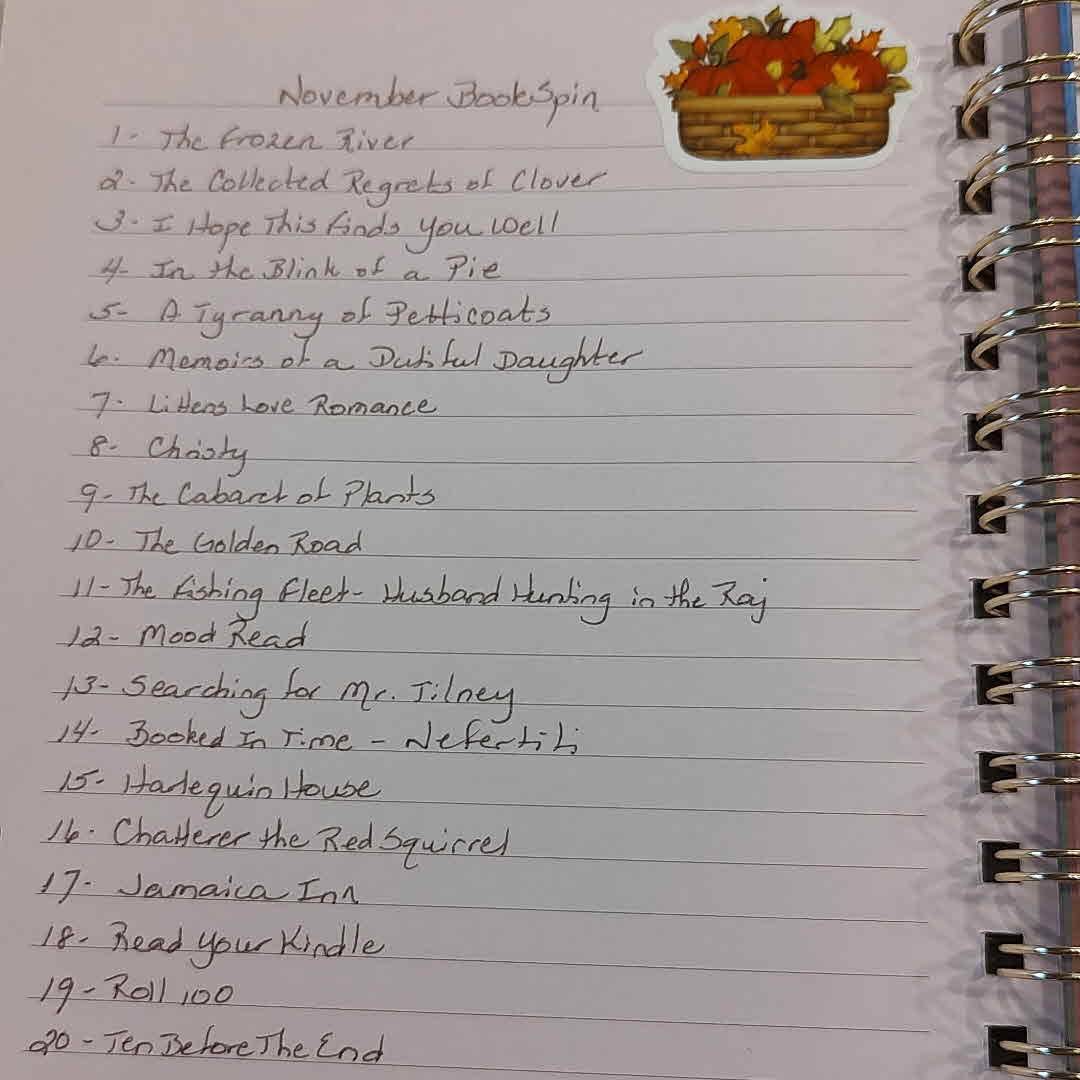 November BookSpin
1- The Frozen River
2- The Collected Regrets of Clover
3- I Hope This Finds You Well
4- In the Blink of a Pie
5- A Tyranny of Petticoats
6- Memoirs of a Dutiful Daughter
7- Littens Love Romance
8- Christy
9- The Cabaret of Plants
10- The Golden Road
11- The Fishing Fleet- Husband Hunting in the Raj
12- Mood Read
13- Searching for Mr. Tilney
14- Booked In Time - Nefertiti
15- Harlequin House
16- Chatterer the Red Squirrel
17- Jamaica Inn
18- Read Your Kindle
19- Roll 100
20- Ten Before The End